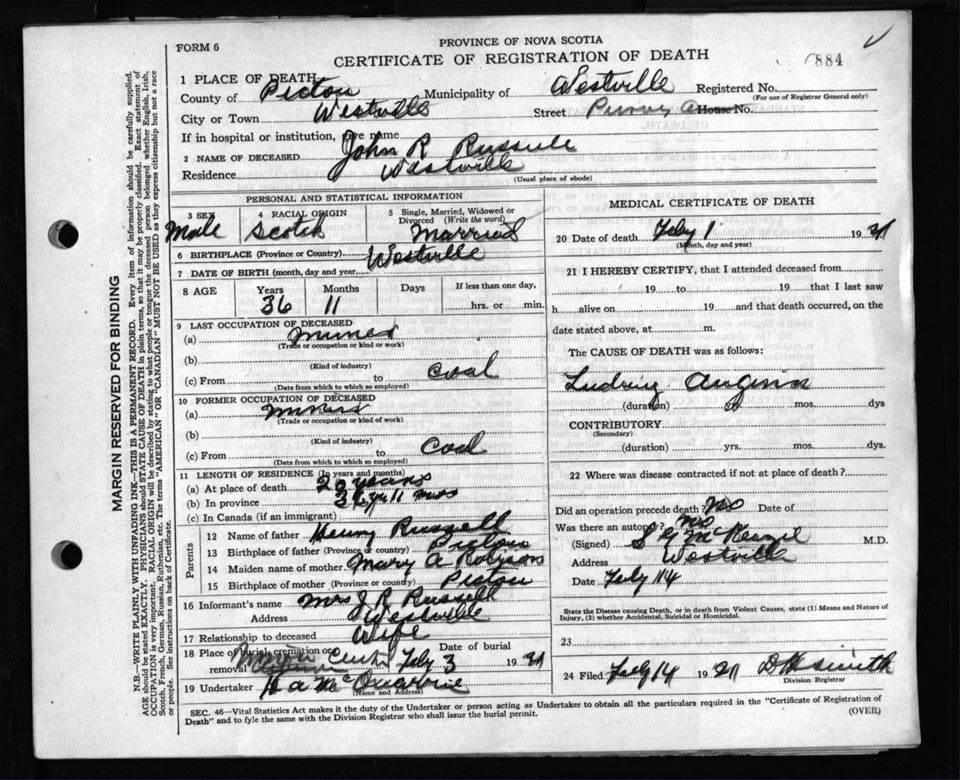 FORM 6
PROVINCE OF NOVA SCOTIA
CERTIFICATE OF REGISTRATION OF DEATH
884
1 PLACE OF DEATH
County of Pictou Municipality of Westville Registered No.
(For use of Registrar General only)
City or Town Westville Street House No.
If in hospital or institution, give name
2 NAME OF DECEASED John R Russell
Residence Westville
(Usual place of abode)
PERSONAL AND STATISTICAL INFORMATION
3 SEX Male
4 RACIAL ORIGIN Scotch
5 Single, Married, Widowed or Divorced (Write the word) Married
6 BIRTHPLACE (Province or Country) Westville
7 DATE OF BIRTH (month, day and year)
8 AGE Years Months Days If less than one day,
36 11 hrs. or min.
9 LAST OCCUPATION OF DECEASED
(a) Miner
(Trade or occupation or kind of work)
(b)
(Kind of industry)
(c) From to Coal
(Date from which to which so employed)
10 FORMER OCCUPATION OF DECEASED
(a) Miner
(Trade or occupation or kind of work)
(b)
(Kind of industry)
(c) From to Coal
(Date from which to which so employed)
11 LENGTH OF RESIDENCE (In years and months)
(a) At place of death 20 years
(b) In province 36 yr 11 mos
(c) In Canada (if an immigrant)
Parents
12 Name of father Henry Russell
13 Birthplace of father (Province or country) Pictou
14 Maiden name of mother Mary A
15 Birthplace of mother (Province or country) Pictou
16 Informant's name Mrs J R Russell
Address Westville
17 Relationship to deceased Wife
18 Place of burial cremation or removal Date of burial
Feby 3 19
19 Undertaker
(Name and Address)
MEDICAL CERTIFICATE OF DEATH
20 Date of death Feby 1 19
(Month, day and year)
21 I HEREBY CERTIFY, that I attended deceased from
19 to 19 that I last saw
h alive on 19 and that death occurred, on the
date stated above, at m.
The CAUSE OF DEATH was as follows:
Ludwig Angina
(duration) mos. dys
CONTRIBUTORY
(Secondary)
(duration) yrs. mos. dys.
22 Where was disease contracted if not at place of death?
Did an operation precede death? No Date of
Was there an autopsy? No
(Signed) McKenzie M.D.
Address Westville
Date Feby 14
State the Disease causing Death, or in death from Violent Causes, state (1) Means and Nature of
Injury, (2) whether Accidental, Suicidal or Homicidal.
23
24 Filed Feby 14 19 Smith
Division Registrar
SEC. 46—Vital Statistics Act makes it the duty of the Undertaker or person acting as Undertaker to obtain all the particulars required in the "Certificate of Registration of
Death" and to fyle the same with the Division Registrar who shall issue the burial permit.
(OVER)
MARGIN RESERVED FOR BINDING
N.B.—WRITE PLAINLY WITH UNFADING INK—THIS IS A PERMANENT RECORD. Every item of information should be carefully supplied.
AGE should be stated EXACTLY. PHYSICIANS should STATE CAUSE OF DEATH in plain terms, so that it may be properly classified. Exact statement of
OCCUPATION is very important. RACIAL ORIGIN will be described by stating to what people or tongue the deceased person belonged whether English, Irish,
Scotch, French, German, Russian, Ruthenian, etc. The terms "AMERICAN" OR "CANADIAN" MUST NOT BE USED as they express citizenship but not a race
or people. See instructions on back of Certificate.